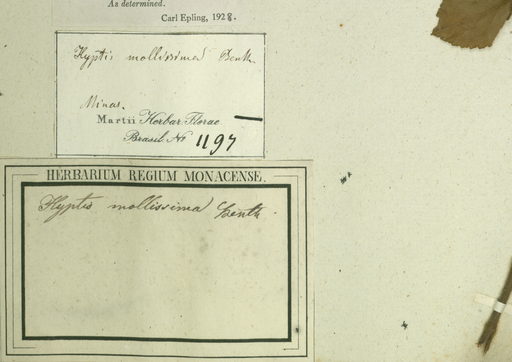 As determined.
Carl Epling, 1928.
Hyptis mollissima Benth.
Minas.
Martii Herbar. Florae
Brasil. No 1197
HERBARIUM REGIUM MONACENSE.
Hyptis mollissima Benth.